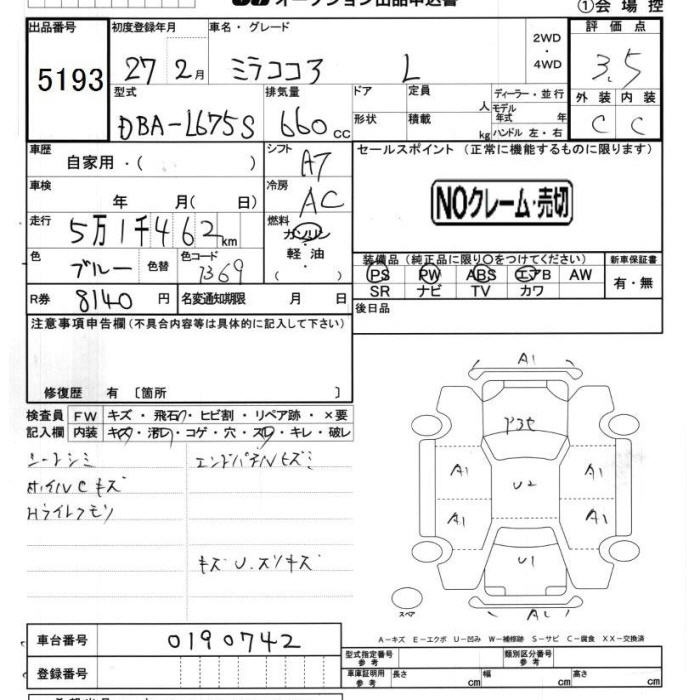 オークション出品申込書
①会場控
出品番号 初度登録年月 車名・グレード 評価点
5193 27 2月 ミラココア L 2WD・4WD 3.5
型式 排気量 ドア 定員 人 ディーラー・並行 外装 内装
DBA-L675S 660cc 形状 積載 kg モデル年式 年 ハンドル 左・右 C C
車歴 自家用・( ) シフト AT セールスポイント (正常に機能するものに限ります)
車検 年 月( 日) 冷房 AC NOクレーム・売切
走行 5万1千462km 燃料 ガソリン・軽油・( )
色 ブルー 色替 色コード B69 装備品 (純正品に限り○をつけてください) 新車保証書
PS PW ABS エアB AW 有・無
SR ナビ TV カワ
R券 8140円 名変通知期限 月 日 後日品
注意事項申告欄(不具合内容等は具体的に記入して下さい)
修復歴 有 〔箇所 〕
検査員 FW キズ・飛石・ヒビ割・リペア跡・×要
記入欄 内装 キズ・汚レ・コゲ・穴・スレ・キレ・破レ
シートシミ
ホイルCキズ
Hライトクモリ
キズU.スリキズ
A1
A1 A1
U2
A1 A1
U1
A1
スペア
A−キズ E−エクボ U−凹み W−補修跡 S−サビ C−腐食 XX−交換済
車台番号 0190742
型式指定番号 参考 類別区分番号 参考
登録番号 車庫証明用 参考 長さ cm 幅 cm 高さ cm